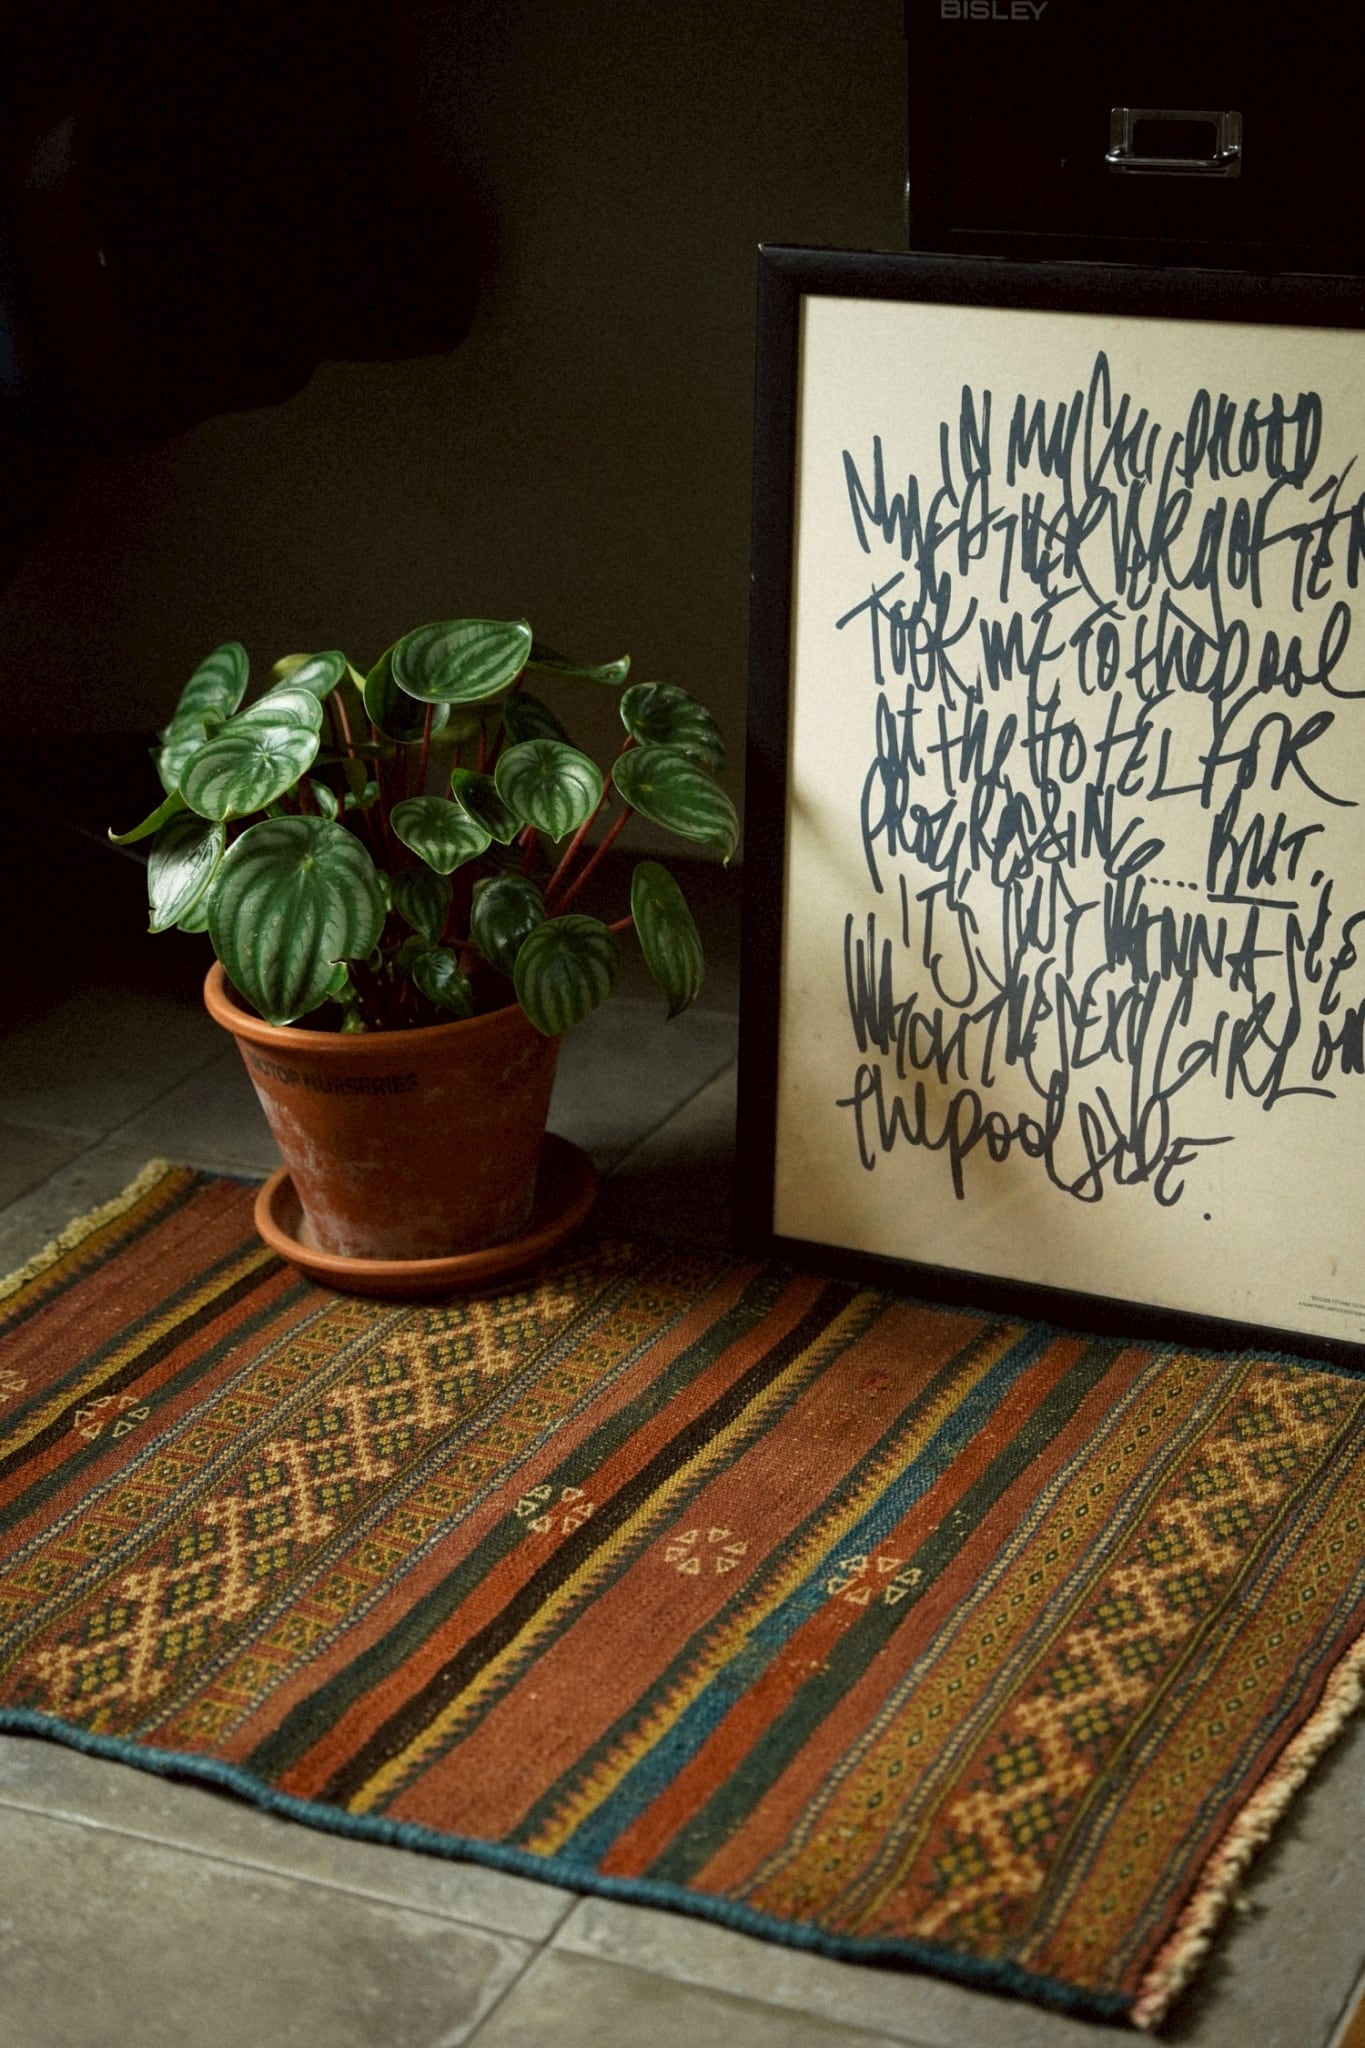 BISLEY
IN MY CHILDHOOD,
MY FATHER VERY OFTEN
TOOK ME TO the pool
At the HOTEL FOR
PROGRESSING ..... BUT,
IT'S JUST WANNA SEE
WATCH THE SEXY GIRLS ON
the poolsiDE.
NURSERIES